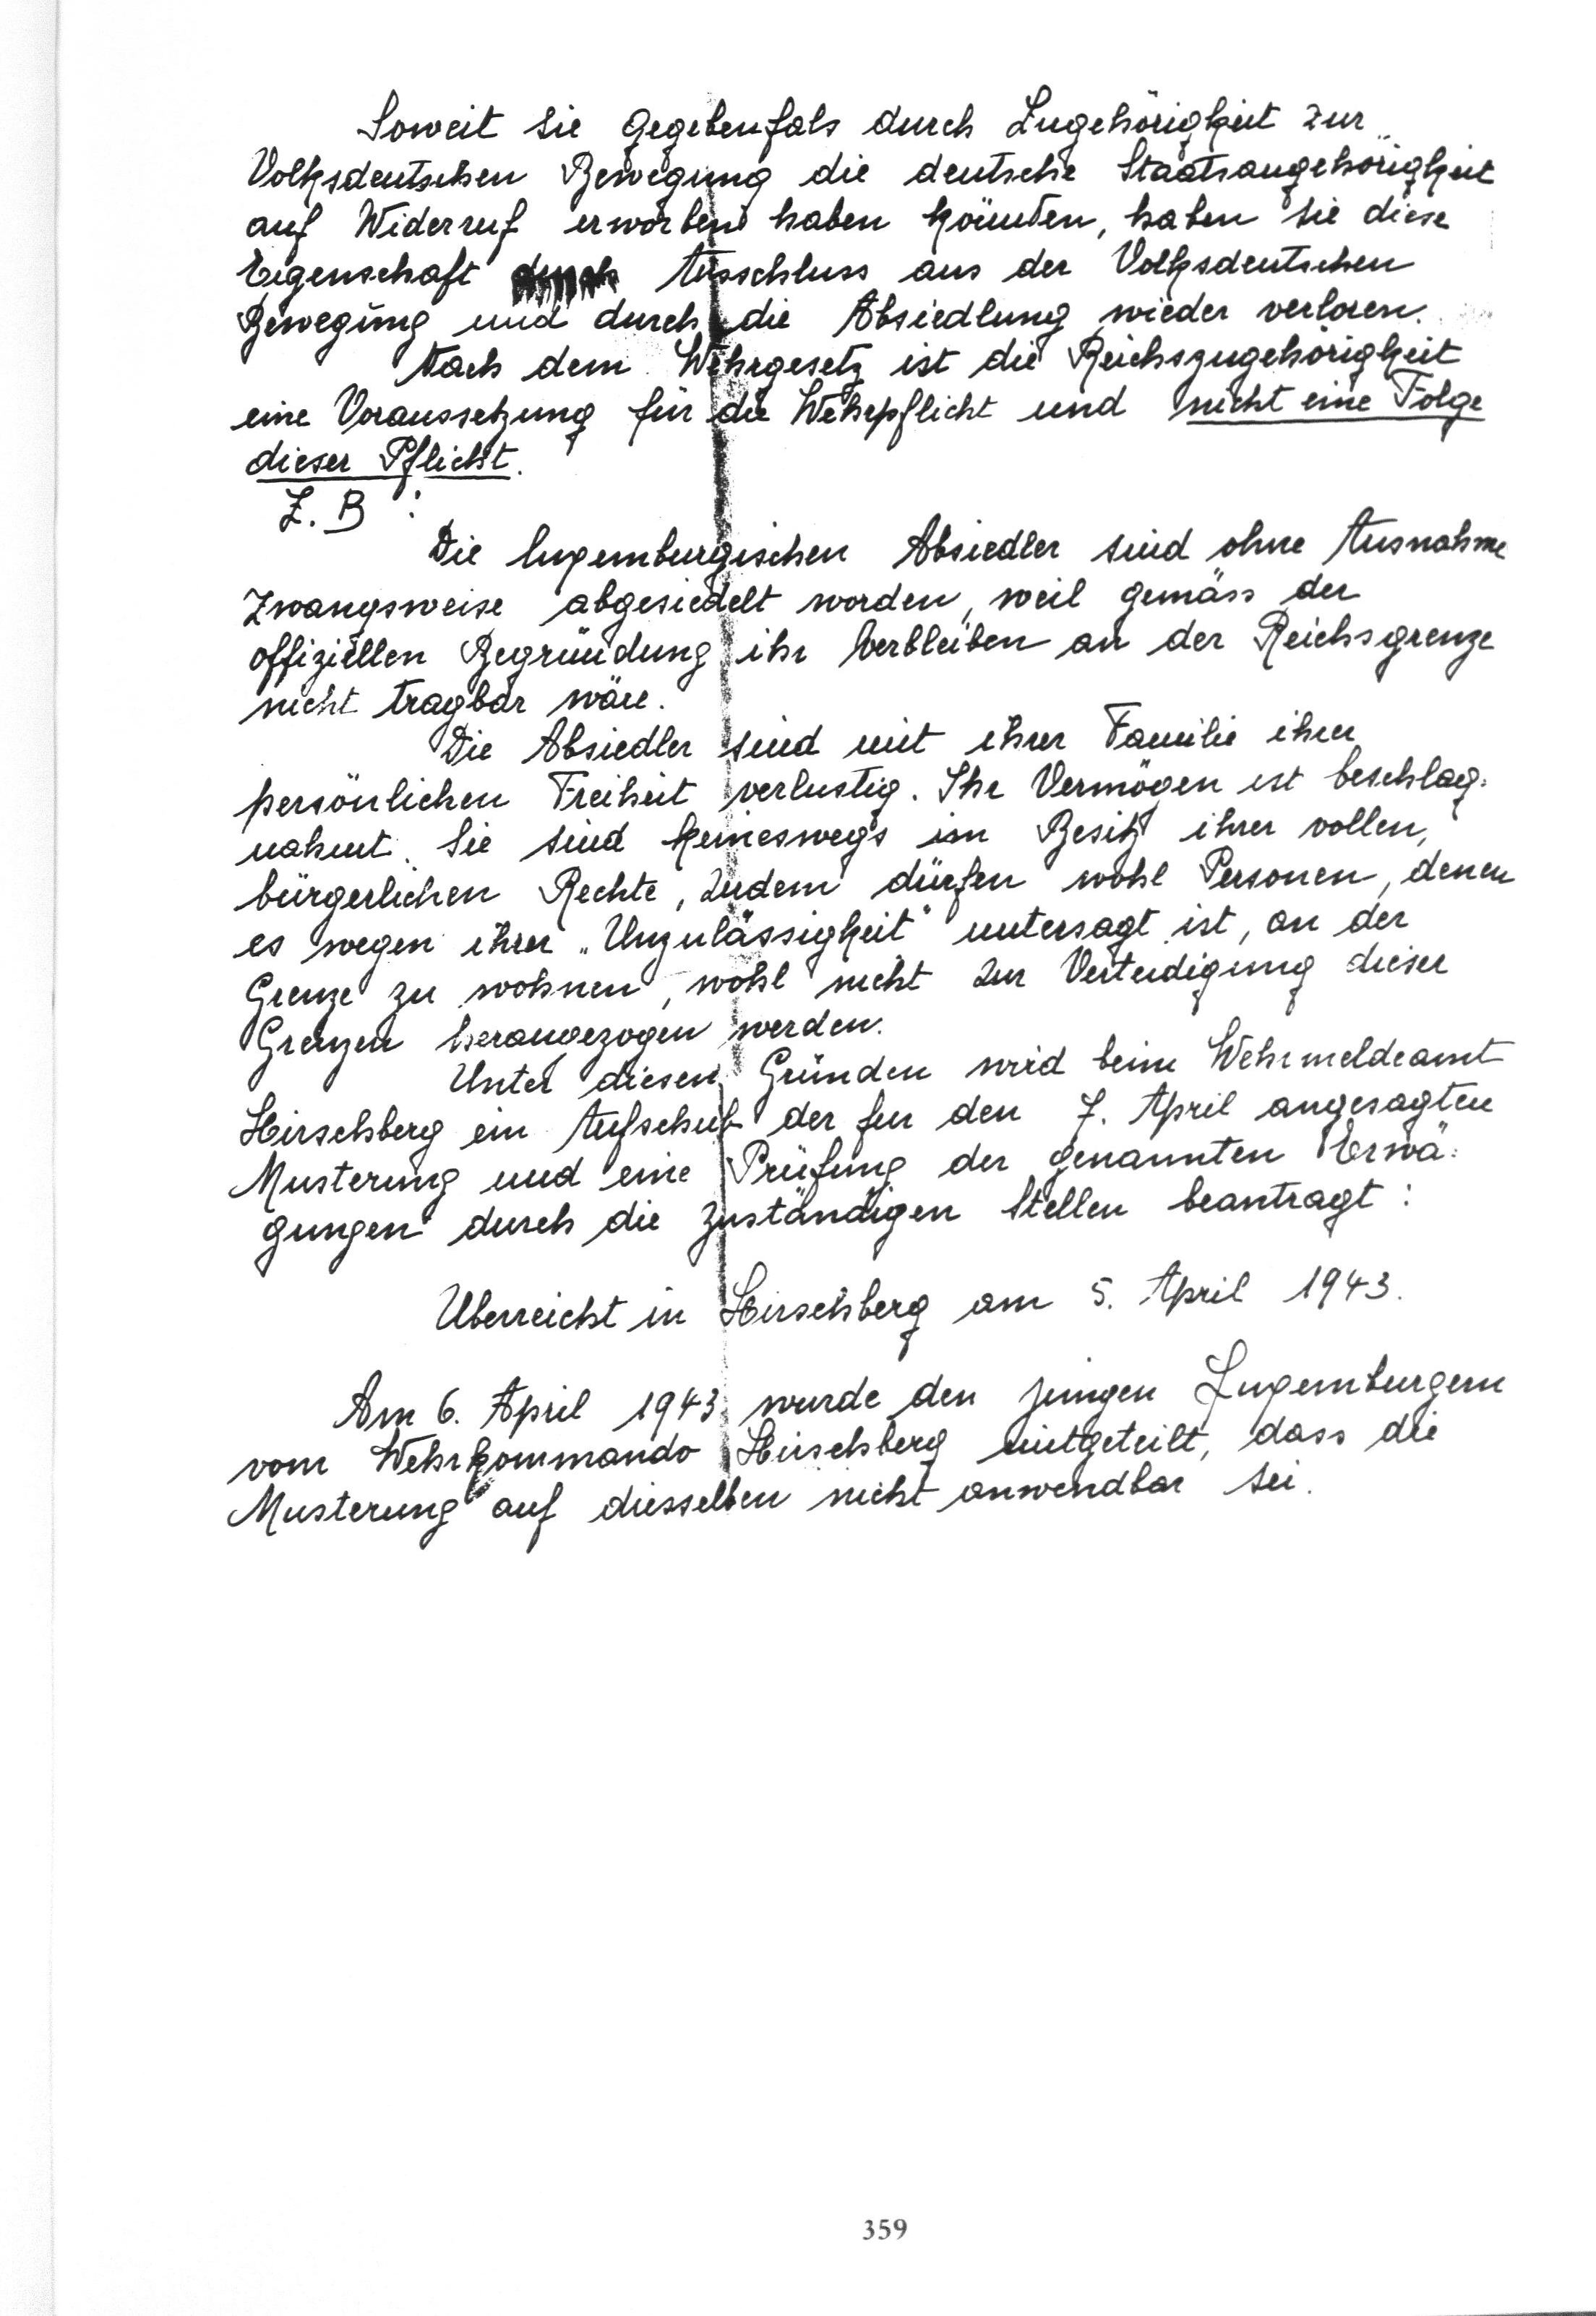 Soweit sie gegebenfals durch Zugehörigkeit zur
Volksdeutschen Bewegung die deutsche Staatsangehörigkeit
auf Widerruf erworben haben könnten, haben sie diese
Eigenschaft durch Ausschluss aus der Volksdeutschen
Bewegung und durch die Absiedlung wieder verloren.
Nach dem Wehrgesetz ist die Reichszugehörigkeit
eine Voraussetzung für die Wehrpflicht und nicht eine Folge
dieser Pflicht.
Z. B :
Die luxemburgischen Absiedler sind ohne Ausnahme
zwangsweise abgesiedelt worden, weil gemäss der
offiziellen Begründung ihr Verbleiben an der Reichsgrenze
nicht tragbar wäre.
Die Absiedler sind mit ihrer Familie ihrer
persönlichen Freiheit verlustig. Ihr Vermögen ist beschlag=
nahmt. Sie sind keineswegs im Besitz ihrer vollen,
bürgerlichen Rechte, zudem dürfen wohl Personen, denen
es wegen ihrer „Unzulässigkeit" untersagt ist, an der
Grenze zu wohnen, wohl nicht zur Verteidigung dieser
Grenzen herangezogen werden.
Unter diesen Gründen wird beim Wehrmeldeamt
Hirschberg ein Aufschub der fur den 7. April angesagten
Musterung und eine Prüfung der genannten Erwä=
gungen durch die zuständigen Stellen beantragt :
Uberreicht in Hirschberg am 5. April 1943.
Am 6. April 1943 wurde den jungen Luxemburgern
vom Wehrkommando Hirschberg mitgeteilt, dass die
Musterung auf diesselben nicht anwendbar sei.
359